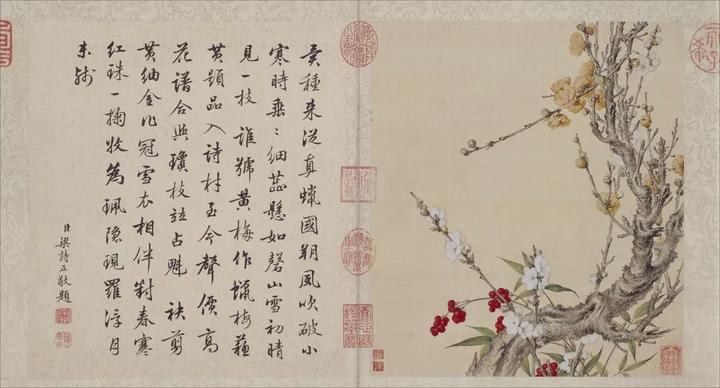 異種来從真蠟國朔風吹破小
寒時垂〻細蕊懸如磬山雪初晴
見一枝誰號黃梅作蠟梅蘓
黃題品入詩材至今聲價高
花譜合與瓊枝竝占魁袂剪
黃紬金冠雪衣相伴對春寒
紅珠一掬收為珮隱現羅浮月
未殘
臣梁詩正敬題